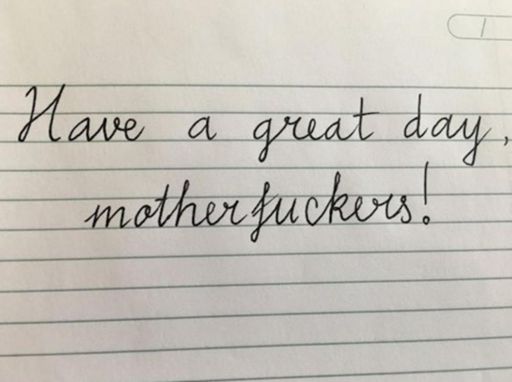 Have a great day,
motherfuckers!